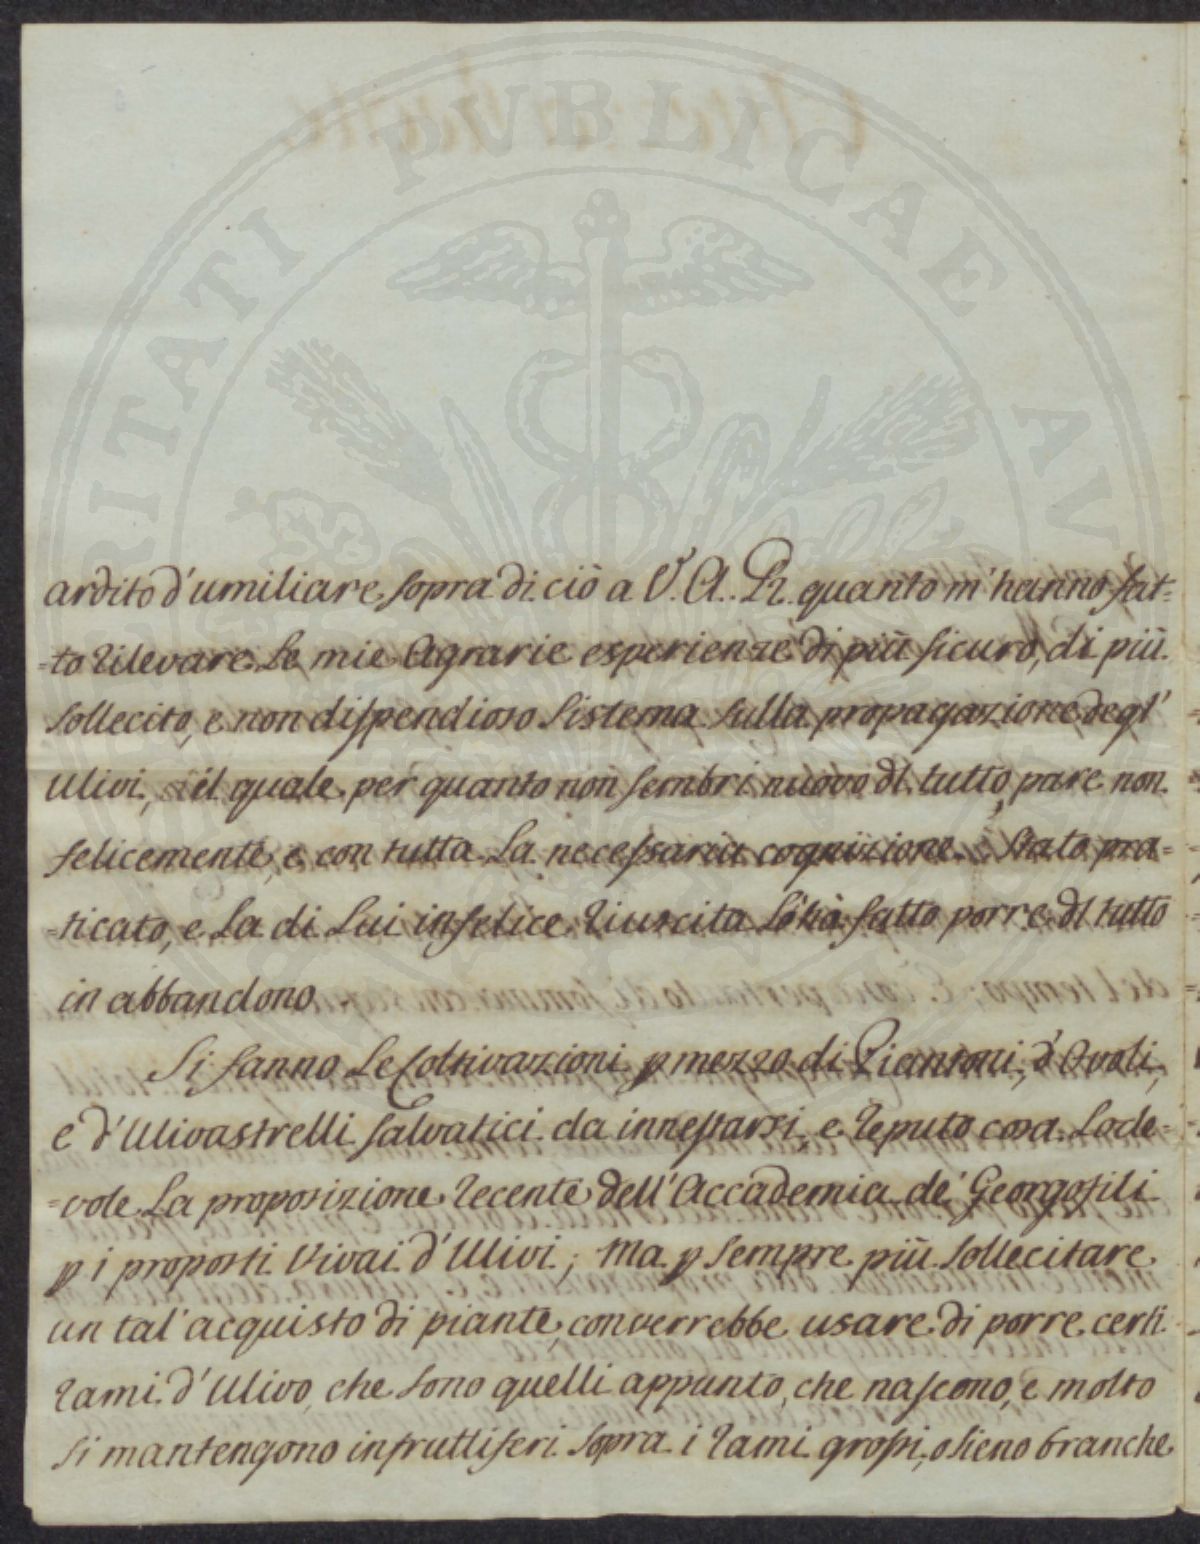 PROSPERITATI PUBLICAE AUGENDAE
ardito d'umiliare sopra di ciò a V. A. R. quanto m'hanno fat=
=to rilevare le mie Agrarie esperienze di più sicuro, di più
sollecito, e non dispendioso sistema sulla propagazione degl'
Ulivi, il quale per quanto non sembri nuovo dl tutto, pare non
felicemente, e con tutta la necessaria cognizione stato pra=
=ticato, e la di lui infelice riuscita l'hà fatto porre dl tutto
in abbandono.
Si fanno le Coltivazioni p mezzo di Piantoni, d'Ovoli,
e d'Ulivastrelli salvatici da innestarsi, e reputo cosa lode=
=vole la proposizione recente dell'Accademia de' Georgofili
p i proposti Vivai d'Ulivi; ma p sempre più sollecitare
un tal'acquisto di piante converrebbe usare di porre certi
rami d'Ulivo, che sono quelli appunto, che nascono, e molto
si mantengono infruttiferi sopra i rami grossi, o sieno branche